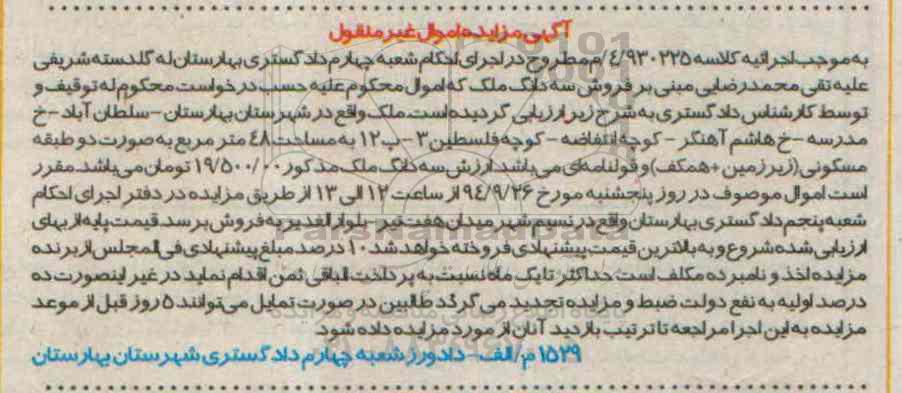 آگهی مزایده اموال غیر منقول
به موجب اجرائیه کلاسه ۴/۹۳۰۲۲۵/م مطروح در اجرای احکام شعبه چهارم دادگستری بهارستان له گلدسته شریفی
علیه تقی محمدرضایی مبنی بر فروش سه دانگ ملک که اموال محکوم علیه حسب درخواست محکوم له توقیف و
توسط کارشناس دادگستری به شرح زیر ارزیابی گردیده است. ملک واقع در شهرستان بهارستان - سلطان آباد - خ
مدرسه - خ هاشم آهنگر - کوچه انتفاضه - کوچه فلسطین ۳ - پ ۱۲ به مساحت ۴۸ متر مربع به صورت دو طبقه
مسکونی (زیرزمین + همکف) و قولنامه‌ای می‌باشد. ارزش سه دانگ ملک مذکور ۱۹/۵۰۰/۰۰۰ تومان می‌باشد. مقرر
است اموال موصوف در روز پنجشنبه مورخ ۹۴/۹/۲۶ از ساعت ۱۲ الی ۱۳ از طریق مزایده در دفتر اجرای احکام
شعبه پنجم دادگستری بهارستان واقع در نسیم شهر میدان هفت تیر - بلوار الغدیر به فروش برسد. قیمت پایه از بهای
ارزیابی شده شروع و به بالاترین قیمت پیشنهادی فروخته خواهد شد. ۱۰ درصد مبلغ پیشنهادی فی المجلس از برنده
مزایده اخذ و نامبرده مکلف است حداکثر تا یک ماه نسبت به پرداخت الباقی ثمن اقدام نماید در غیر اینصورت ده
درصد اولیه به نفع دولت ضبط و مزایده تجدید می گردد طالبین در صورت تمایل می‌توانند ۵ روز قبل از موعد
مزایده به این اجرا مراجعه تا ترتیب بازدید آنان از مورد مزایده داده شود.
۱۵۲۹ م/الف - دادورز شعبه چهارم دادگستری شهرستان بهارستان